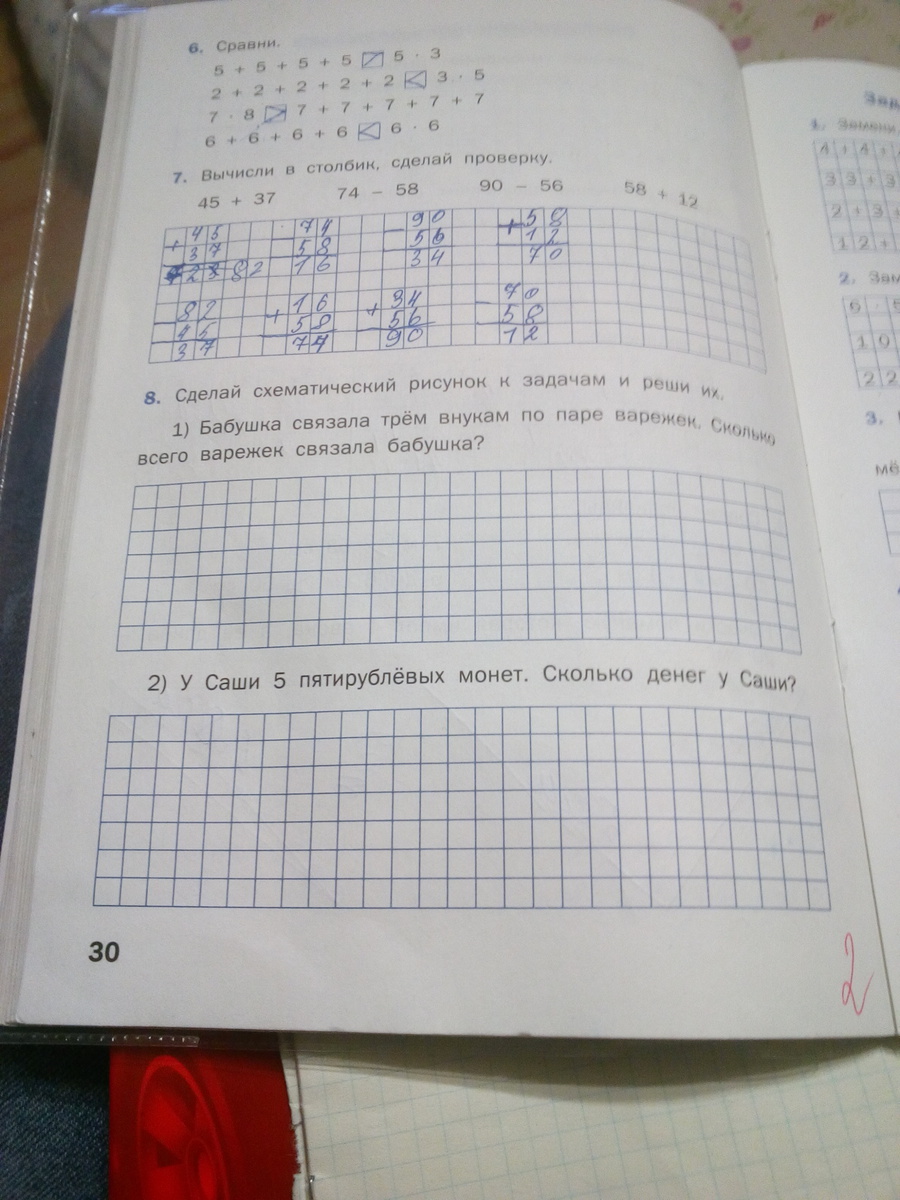 6. Сравни.
5 + 5 + 5 + 5 5 · 3
2 + 2 + 2 + 2 + 2 < 3 · 5
7 · 8 > 7 + 7 + 7 + 7 + 7
6 + 6 + 6 + 6 < 6 · 6
7. Вычисли в столбик, сделай проверку.
45 + 37 74 − 58 90 − 56 58 + 12
45 74 90 58
+ 37 − 58 − 56 + 12
82 16 34 70
82 16 34 70
− 45 + 58 + 56 − 58
37 74 90 12
8. Сделай схематический рисунок к задачам и реши их.
1) Бабушка связала трём внукам по паре варежек. Сколько
всего варежек связала бабушка?
2) У Саши 5 пятирублёвых монет. Сколько денег у Саши?
30
2
1. Замени
4 + 4 +
3 3 + 3
2 + 3 +
1 2 +
2. Зам
6 · 5
1 0
2 2
3.
мё